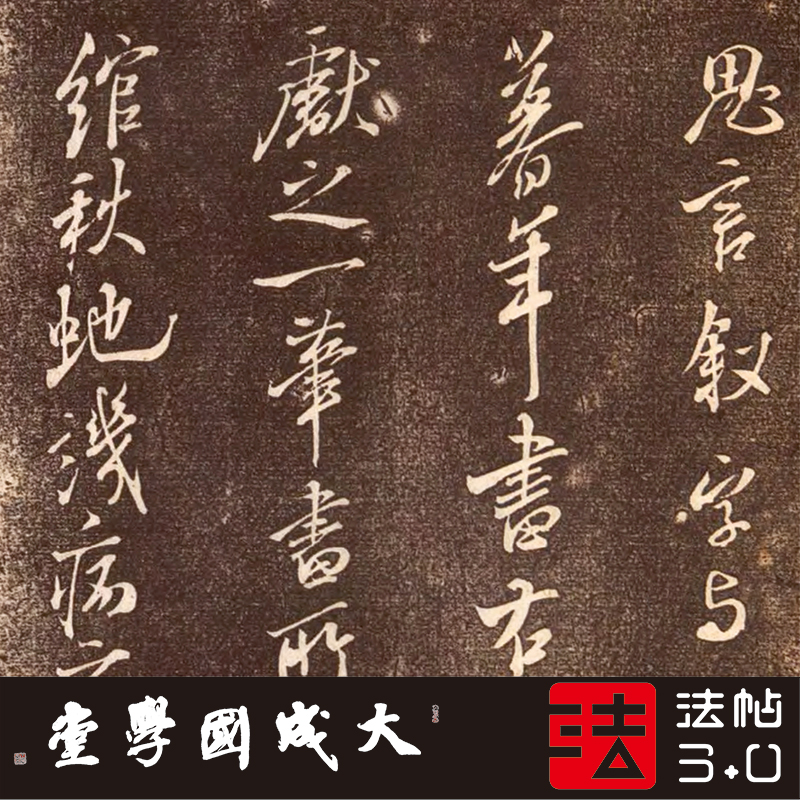 思言叙字与
暮年書右
獻之一筆書所
綰秋蛇譏病
大成國學堂
法
法帖
3.0